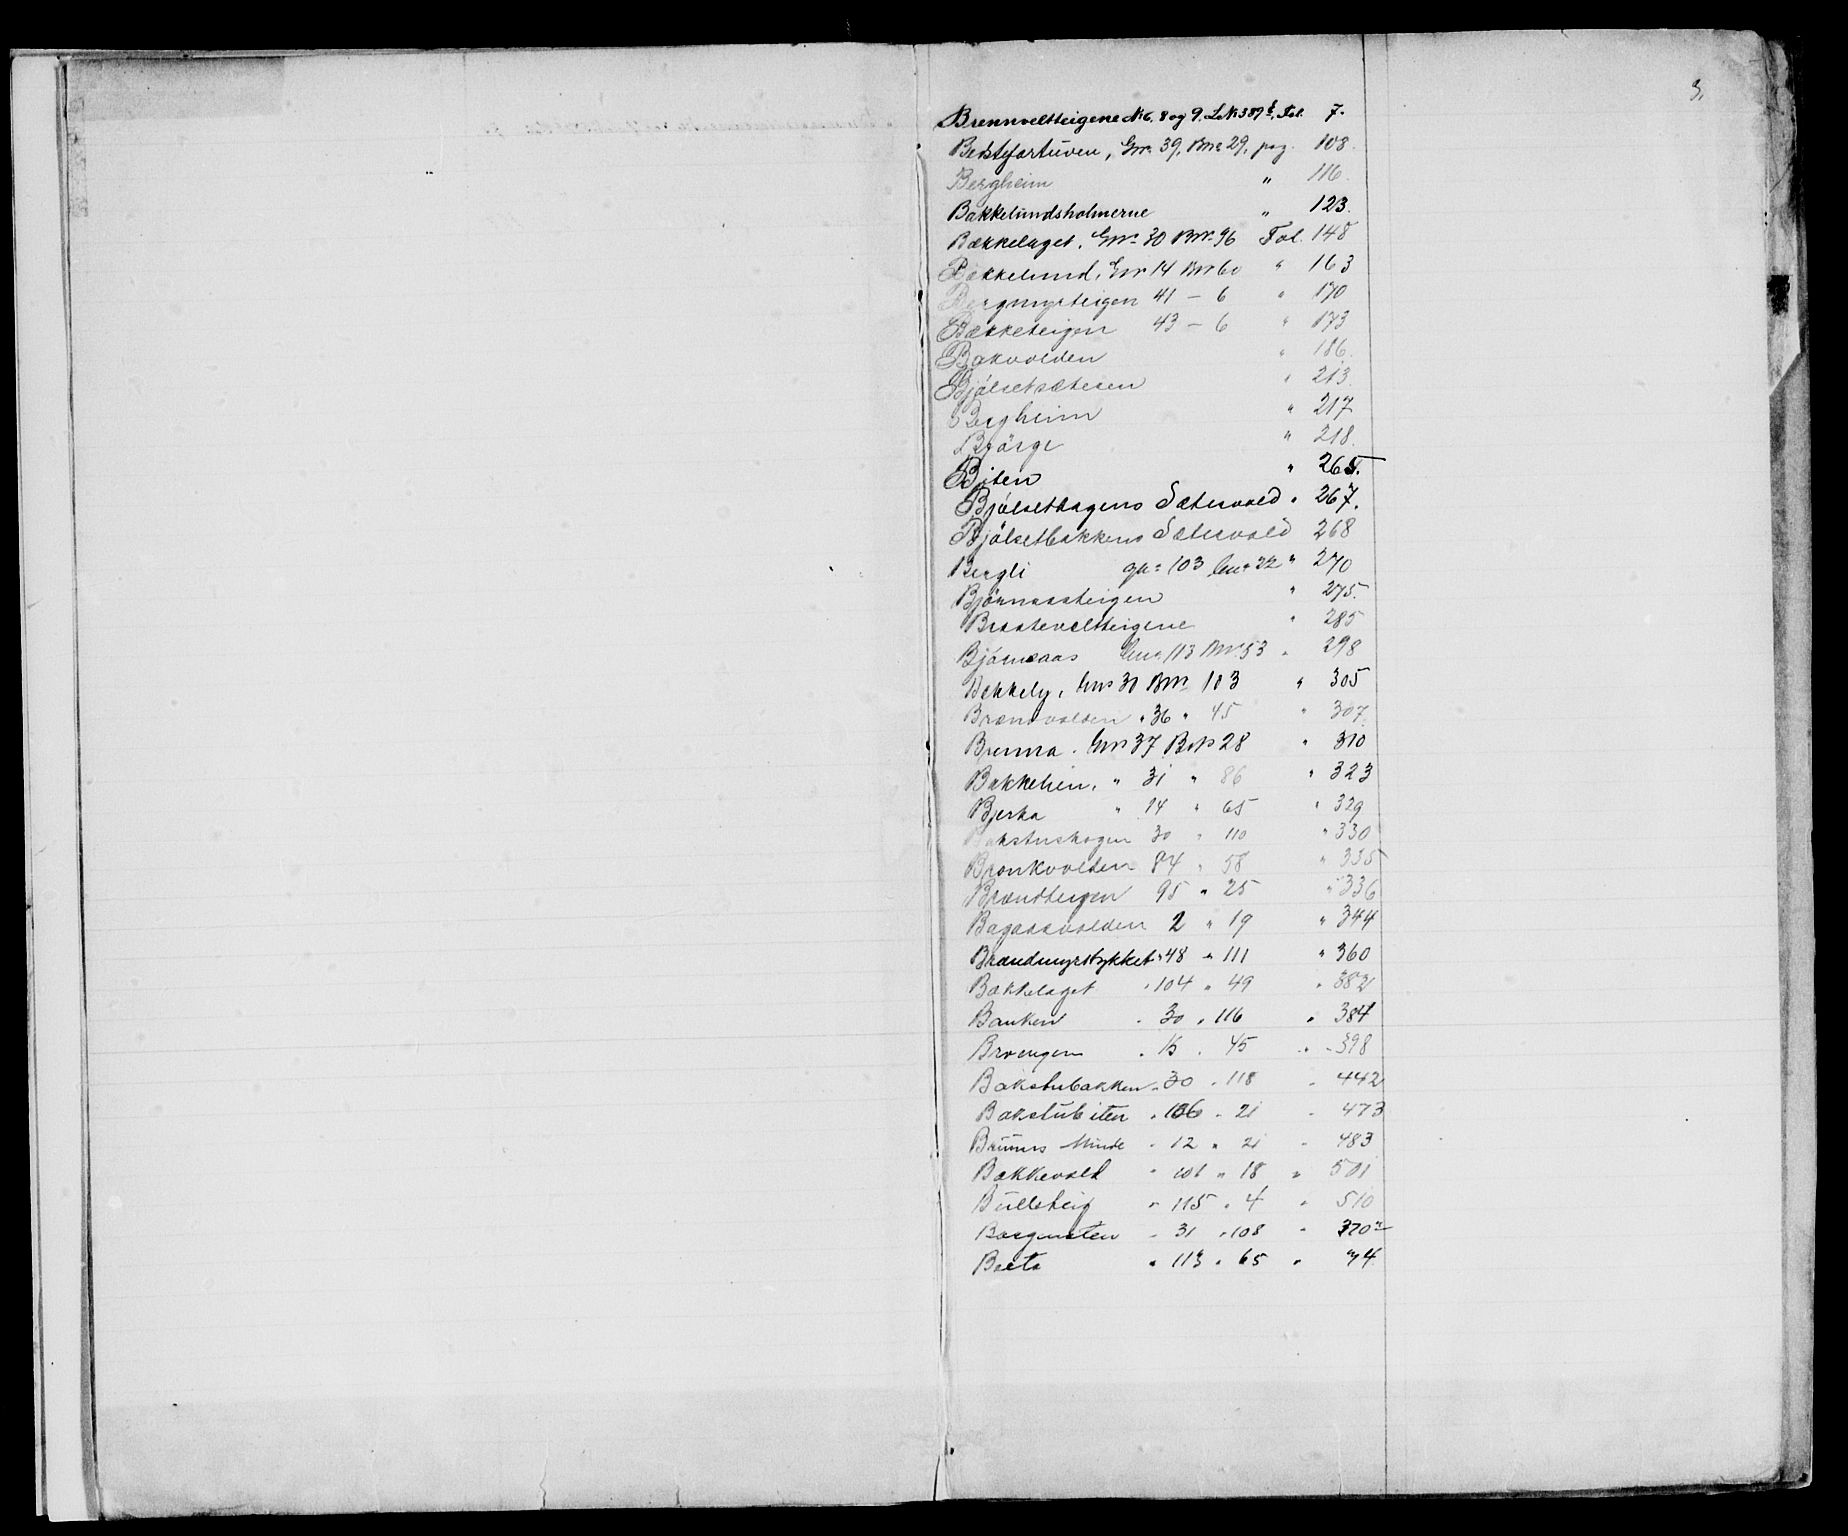 3.
Brennveltteigene No 6, 8 og 9. L.No 389 f, Fol. 7.
Bedstefartuven, Gnr. 39, Bnr. 29, pag. 108.
Bergheim " 116.
Bakkelundsholmerne " 123.
Bækkelaget, Gnr. 30 Bnr. 96 Fol. 148
Bækkelund, Gnr 14 Bnr 60 " 163
Bergmyrteigen 41 – 6 " 170
Bækketeigen 43 – 6 " 173
Bakvolden " 186.
Bjölsetsæteren " 213.
Bergheim " 217
Bjørge " 218.
Biten " 265.
Bjölsethagens Sætervold " 267.
Bjölsetbakkens Sætervold 268
Bergli gn: 103 bnr 22 " 270
Björnaasteigen " 275.
Braateveltteigene " 285
Björnaas Gnr. 113 Bnr 53 " 298
Bekkely, Gnr 30 Bnr 103 " 305
Brændvolden " 36 " 45 " 307.
Brenna. Gnr 37 Bnr 28 " 310
Bakkelien, " 31 " 86 " 323
Bjerka " 14 " 65 " 329
Bakstuskogen 30 " 110 " 330
Bronkvolden 84 " 58 " 335
Brændteigen 95 " 25 " 336
Bagaasvolden 2 " 19 " 344
Brændmyrstykket " 48 " 111 " 360
Bækkelaget " 104 " 49 " 382
Banken " 30 " 116 " 384
Broengen " 15 " 45 " 398
Bakstubakken " 30 " 118 " 442
Bakstubiten " 106 " 21 " 473
Bruuns Minde " 12 " 21 " 483
Bakkevold " 101 " 18 " 501
Bulleteig " 115 " 4 " 510
" 31 " 108 " 370
" 113 " 65 " 74